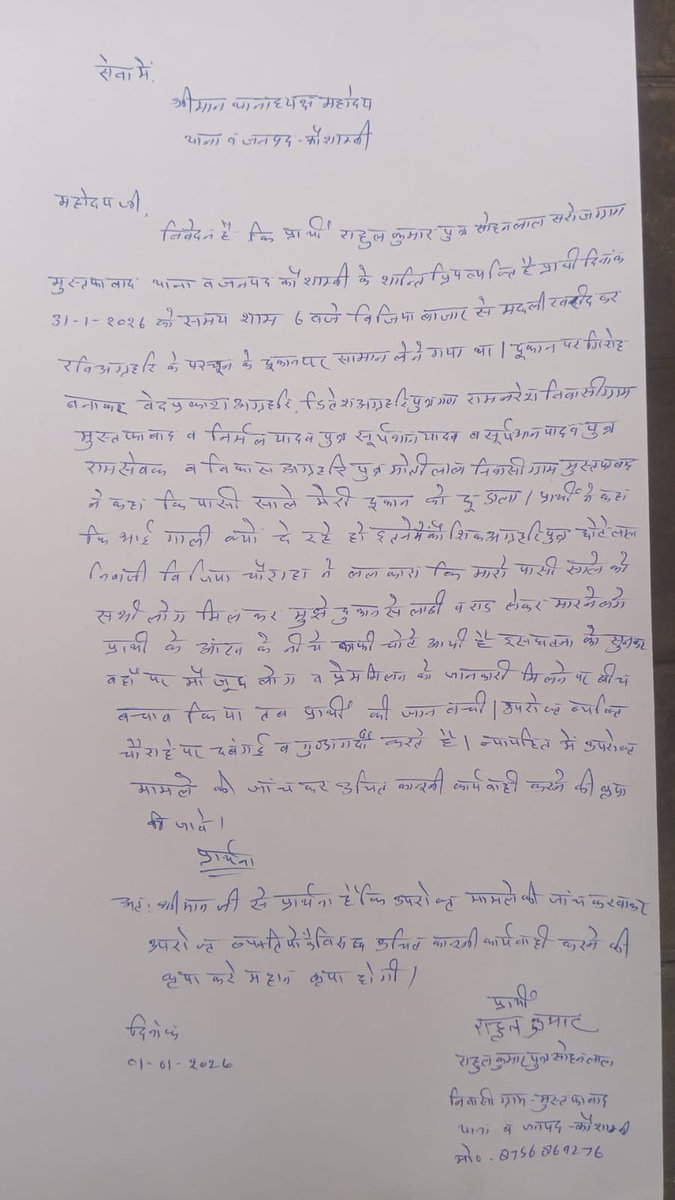 सेवा में,
श्रीमान थानाध्यक्ष महोदय
थाना व जनपद - कौशाम्बी
महोदय जी,
निवेदन है कि प्रार्थी राहुल कुमार पुत्र सोहनलाल सरोज ग्राम
मुस्तफाबाद थाना व जनपद कौशाम्बी के शान्ति प्रिय व्यक्ति है प्रार्थी दिनांक
31-1-2026 को समय शाम 6 बजे विजिया बाजार से मछली खरीद कर
रवि अग्रहरि के परचून के दूकान पर सामान लेने गया था। दूकान पर गिरोह
बनाकर वेद प्रकाश अग्रहरि, हितेश अग्रहरि पुत्रगण रामनरेश निवासी ग्राम
मुस्तफाबाद व निर्मल यादव पुत्र सूर्यभान यादव व सूर्यभान यादव पुत्र
रामसेवक व विकास अग्रहरि पुत्र मोतीलाल निवासी ग्राम मुस्तफाबाद
ने कहा कि पासी साले मेरी दूकान को छू डाला। प्रार्थी ने कहा
कि भाई गाली क्यों दे रहे हो इतने में कौशिक अग्रहरि पुत्र छोटे लाल
निवासी विजिया चौराहा ने ललकारा कि मारो पासी साले को
सभी लोग मिल कर मुझे दुकान से लाठी व राड लेकर मारने लगे
प्रार्थी के आंख के नीचे काफी चोटे आयी है इस घटना को सुनकर
वहाँ पर मौजूद लोग व प्रेम मिलन को जानकारी मिलने पर बीच
बचाव किया तब प्रार्थी की जान बची। उपरोक्त व्यक्ति
चौराहे पर दबंगई व गुण्डागर्दी करते है। न्यायहित में उपरोक्त
मामले की जांच कर उचित कानूनी कार्यवाही करने की कृपा
की जावे।
प्रार्थना
अत: श्रीमान जी से प्रार्थना है कि उपरोक्त मामले की जांच करवाकर
उपरोक्त व्यक्तियों के विरुद्ध उचित कानूनी कार्यवाही करने की
कृपा करे महान कृपा होगी।
प्रार्थी
राहुल कुमार
दिनांक
01-01-2026
राहुल कुमार पुत्र सोहनलाल
निवासी ग्राम - मुस्तफाबाद
थाना व जनपद - कौशाम्बी
मो०. 8756869276